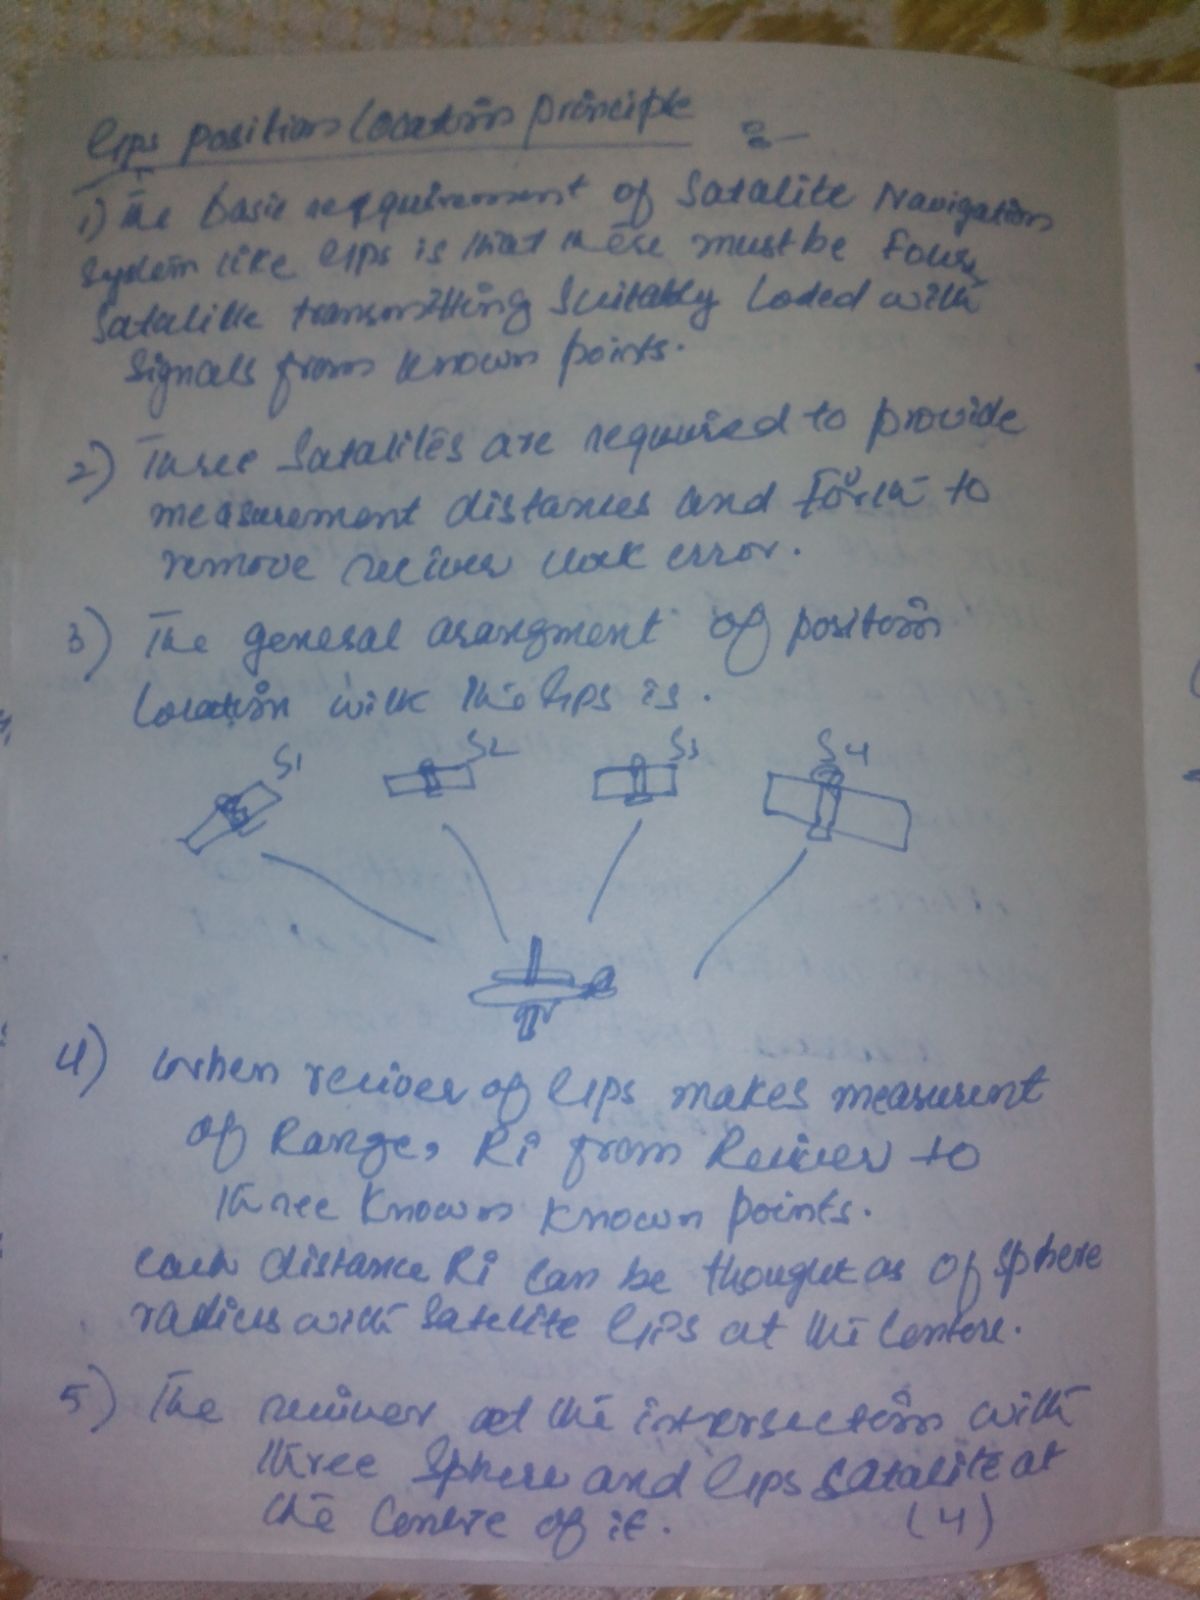 GPS Position Location principle :-
1) The basic requirement of Satalite Navigation
System like GPS is that there must be Four
Satalite transmitting Suitably Coded with
Signals from known points.
2) Three Satalites are required to provide
measurement distances and Fourth to
remove reciver clock error.
3) The general arangment of position
Location with the GPS is.
S1 S2 S3 S4
4) When reciver of GPS makes measurment
of Range, Ri from Reciver to
three known known points.
each distance Ri can be thought as of sphere
radius with Satelite GPS at the Centre.
5) The reciver at the intersection with
three Sphere and GPS Satalite at
the Centre of it. (4)